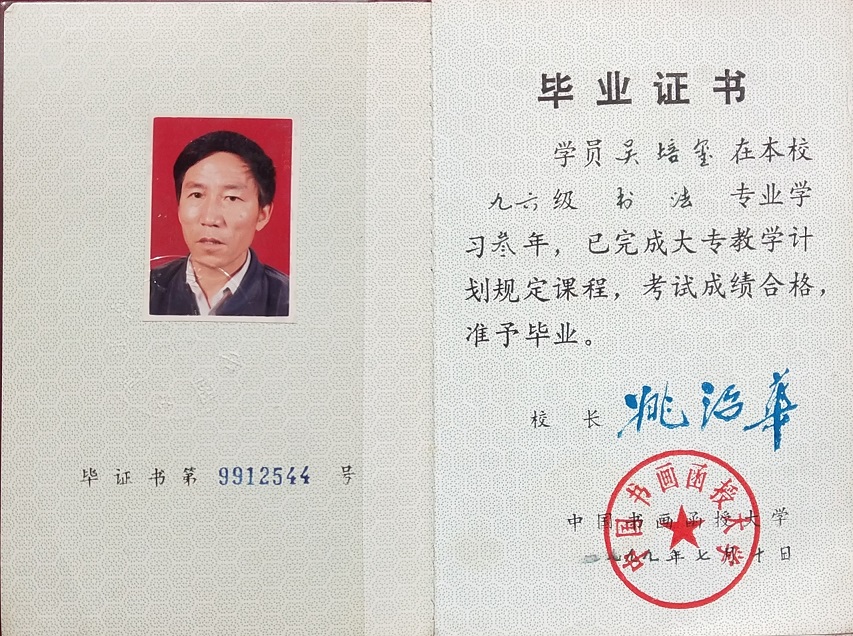 毕证书第 9912544 号
毕业证书
学员吴培玺在本校
九六级 书法 专业学
习叁年，已完成大专教学计
划规定课程，考试成绩合格，
准予毕业。
校 长 姚治华
中国书画函授大学
中国书画函授大学
一九九九年七月 十日